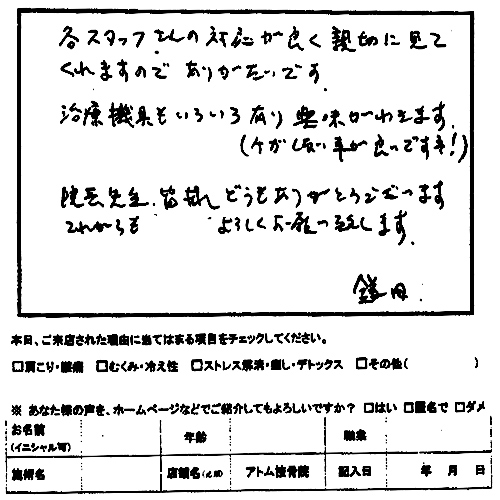 各スタッフさんの対応が良く親切に見て
くれますのでありがたいです。
治療機具もいろいろ有り興味がわきます。
(ケガしない事が良いのですネ!)
院長先生、皆様、どうもありがとうございます
これからも よろしくお願い致します。
鎌田.
本日、ご来店された理由に当てはまる項目をチェックしてください。
□肩こり・腰痛 □むくみ・冷え性 □ストレス解消・癒し・デトックス □その他( )
※ あなた様の声を、ホームページなどでご紹介してもよろしいですか? □はい □匿名で □ダメ
お名前 年齢 職業
(イニシャル可)
施術名 店舗名 アトム接骨院 記入日 年 月 日